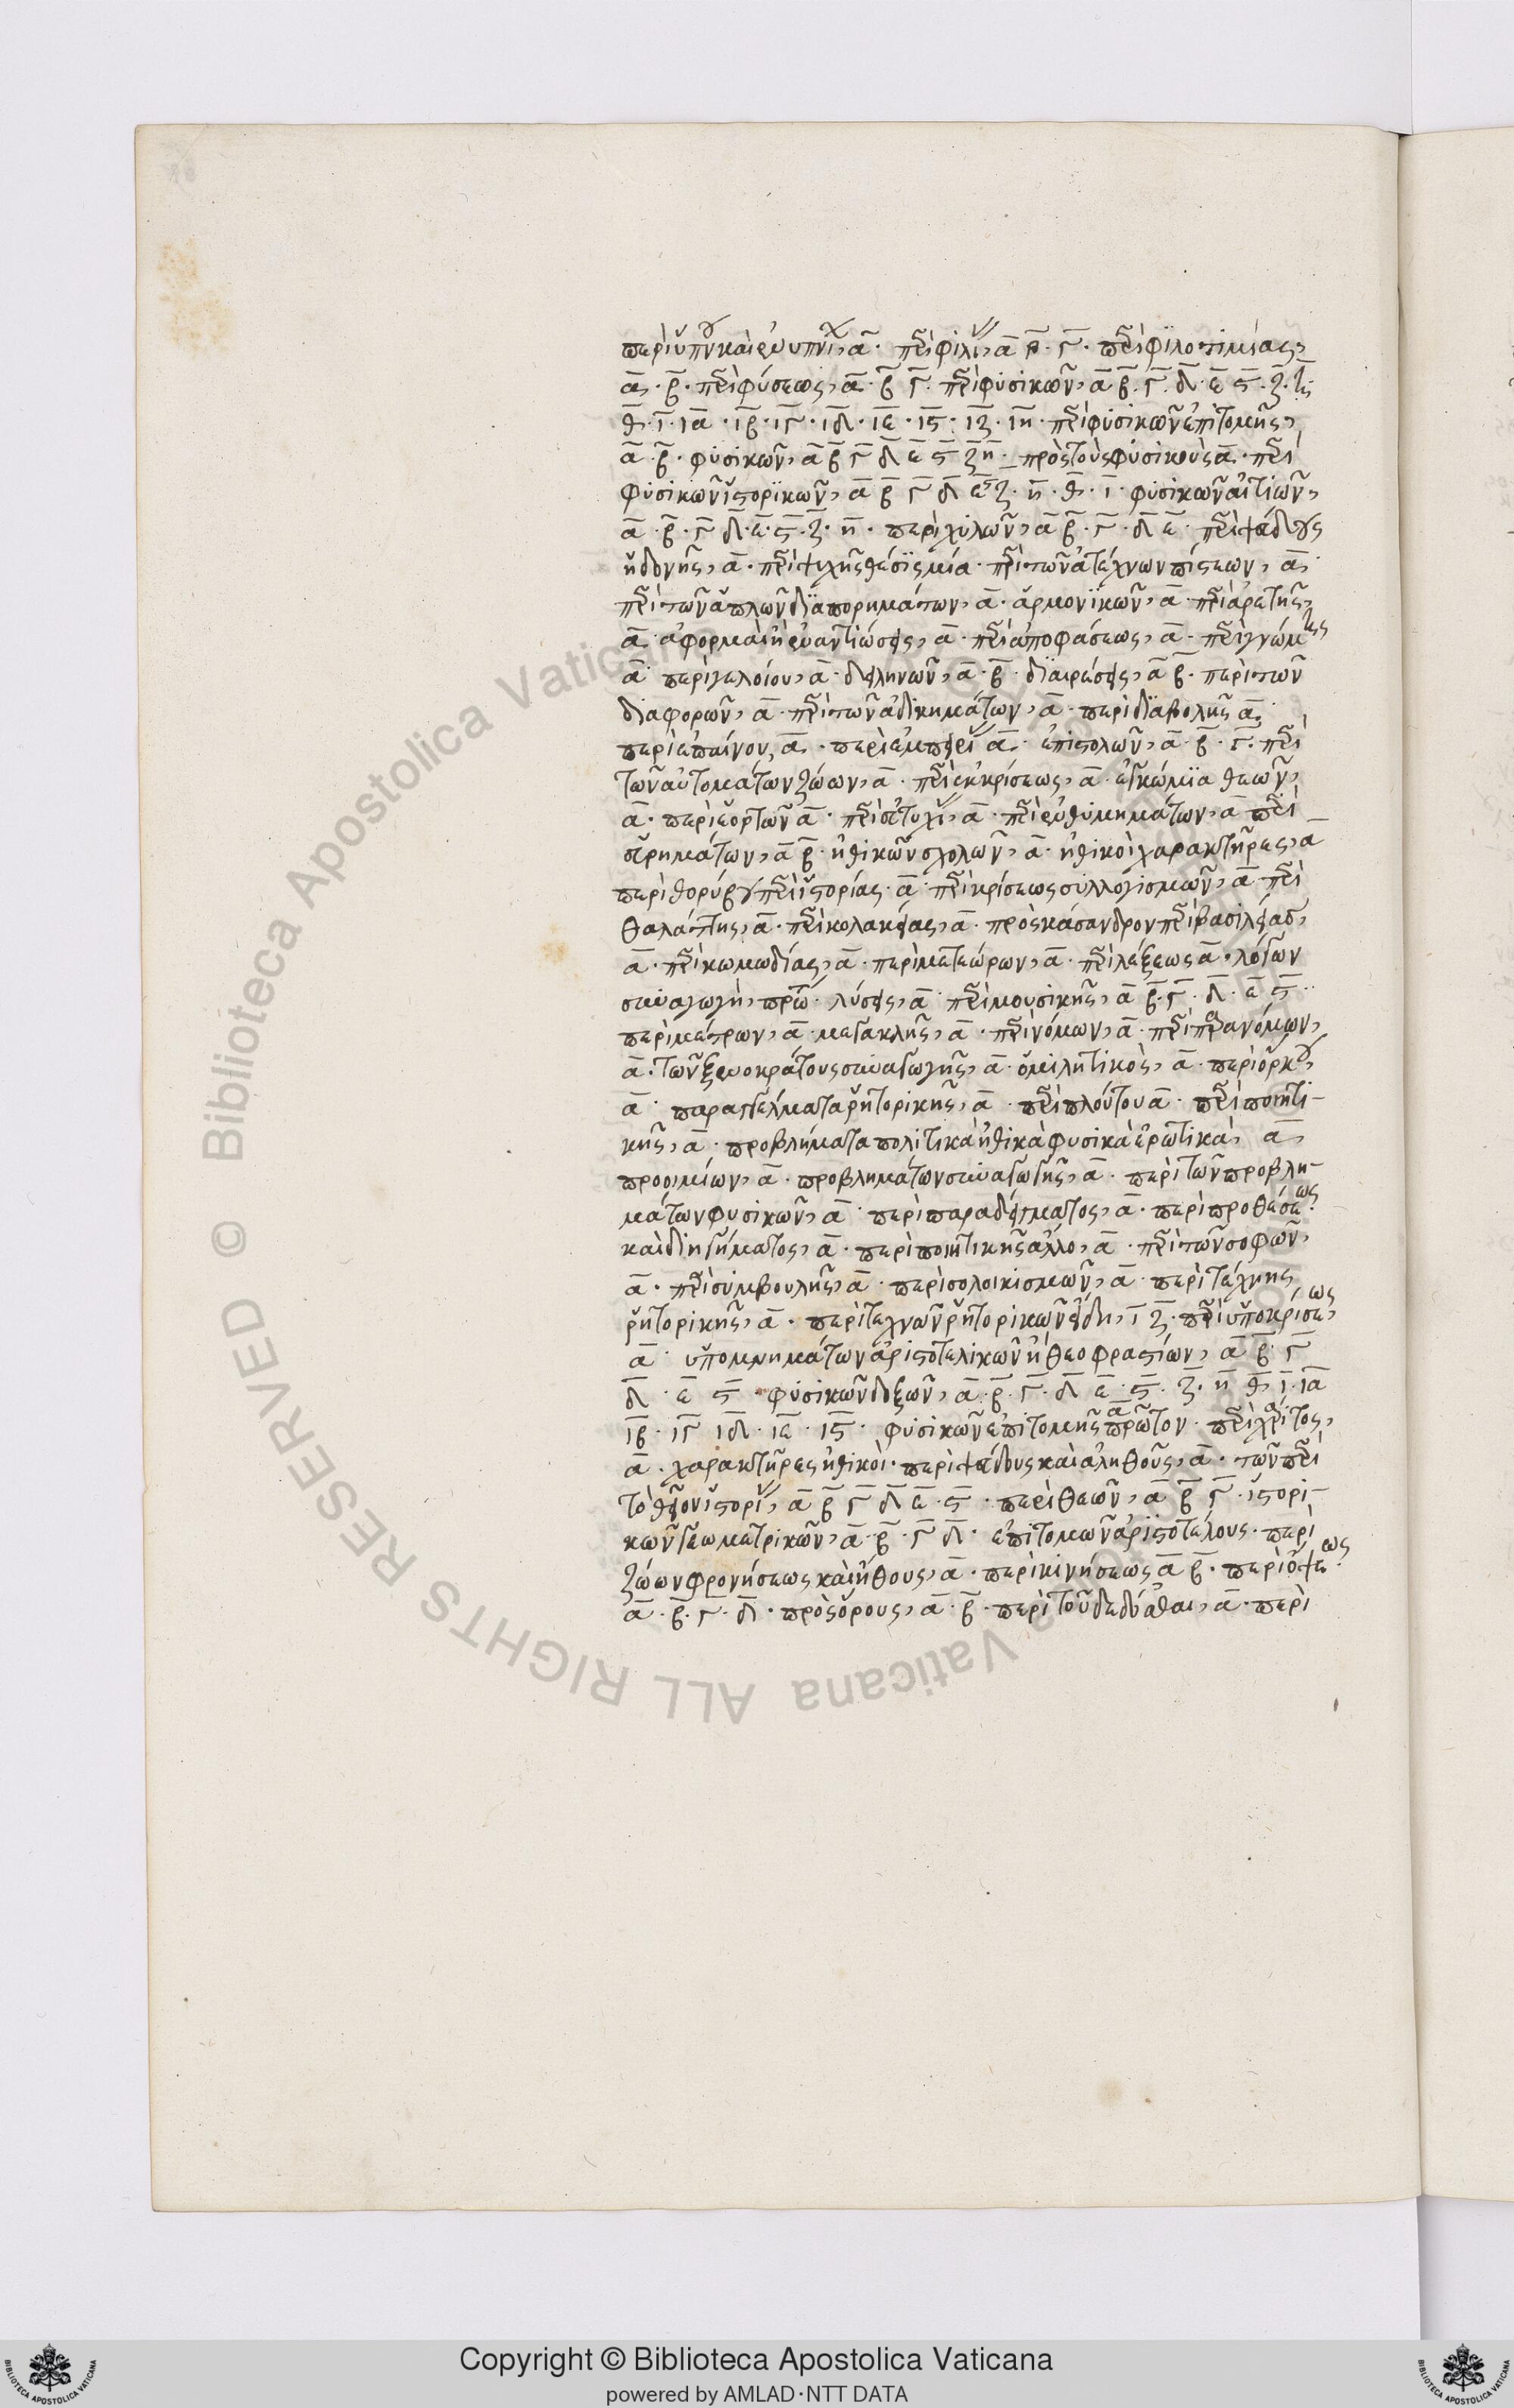 περὶ ὕπνου καὶ ἐνυπνίων, α̅· περὶ φιλίας, α̅ β̅· γ̅· περὶ φιλοτιμίας,
α̅· β̅· περὶ φύσεως, α̅· β̅ γ̅· περὶ φυσικῶν, α̅ β̅· γ̅· δ̅· ε̅ ϛ̅· ζ̅· η̅·
θ̅· ι̅· ια̅· ιβ̅· ιγ̅· ιδ̅· ιε̅· ιϛ̅· ιζ̅· ιη̅· περὶ φυσικῶν ἐπιτομῆς,
α̅· β̅· φυσικῶν, α̅ β̅ γ̅ δ̅ ε̅ ϛ̅ ζ̅ η̅· πρὸς τοὺς φυσικοὺς α̅· περὶ
φυσικῶν ἱστορικῶν, α̅ β̅ γ̅ δ̅ ε̅ ϛ̅ ζ̅· η̅· θ̅· ι̅· φυσικῶν αἰτιῶν,
α̅· β̅· γ̅ δ̅· ε̅· ϛ̅· ζ̅· η̅· περὶ χυλῶν, α̅ β̅· γ̅· δ̅ ε̅· περὶ ψεύδους
ἡδονῆς, α̅· περὶ ψυχῆς θέσις μία· περὶ τῶν ἀτέχνων πίστεων, α̅·
περὶ τῶν ἁπλῶν διαπορημάτων, α̅· ἁρμονικῶν, α̅· περὶ ἀρετῆς,
α̅· ἀφορμαὶ ἢ ἐναντιώσεις, α̅· περὶ ἀποφάσεως, α̅· περὶ γνώμης
α̅· περὶ γελοίου, α̅· δειληνῶν, α̅· β̅· διαιρέσεις, α̅ β̅· περὶ τῶν
διαφορῶν, α̅· περὶ τῶν ἀδικημάτων, α̅· περὶ διαβολῆς α̅·
περὶ ἐπαίνου, α̅· περὶ ἐμπειρίας α̅· ἐπιστολῶν, α̅· β̅· γ̅· περὶ
τῶν αὐτομάτων ζώων, α̅· περὶ ἐκκρίσεως, α̅· ἐγκώμια θεῶν,
α̅· περὶ ἑορτῶν α̅· περὶ εὐτυχίας, α̅· περὶ ἐνθυμημάτων, α̅ περὶ
εὑρημάτων, α̅ β̅· ἠθικῶν σχολῶν, α̅· ἠθικοὶ χαρακτῆρες, α̅
περὶ θορύβου περὶ ἱστορίας· α̅· περὶ κρίσεως συλλογισμῶν, α̅· περὶ
θαλάττης, α̅· περὶ κολακείας, α̅· πρὸς κάσανδρον περὶ βασιλείας,
α̅· περὶ κωμωδίας, α̅· περὶ μετεώρων, α̅· περὶ λέξεως α̅· λόγων
συναγωγὴ, πρώ· λύσεις, α̅· περὶ μουσικῆς, α̅ β̅· γ̅· δ̅· ε̅ ϛ̅··
περὶ μέτρων, α̅· μεγακλῆς, α̅· περὶ νόμων, α̅· περὶ παρανόμων,
α̅· τῶν ξενοκράτους συναγωγῆς, α̅· ὁμιλητικὸς, α̅· περὶ ὅρκου,
α̅· παραγγέλματα ῥητορικῆς, α̅· περὶ πλούτου α̅· περὶ ποιητι-
κῆς, α̅· προβλήματα πολιτικὰ ἠθικὰ φυσικὰ ἐρωτικὰ, α̅,
προοιμίων, α̅· προβλημάτων συναγωγῆς, α̅· περὶ τῶν προβλη-
μάτων φυσικῶν, α̅· περὶ παραδείγματος, α̅· περὶ προθέσεως·
καὶ διηγήματος, α̅· περὶ ποιητικῆς ἄλλο, α̅· περὶ τῶν σοφῶν,
α̅· περὶ συμβουλῆς, α̅· περὶ σολοικισμῶν, α̅· περὶ τέχνης
ῥητορικῆς, α̅· περὶ τεχνῶν ῥητορικῶν εἴδη, ι̅ ζ̅· περὶ ὑποκρίσεως,
α̅· ὑπομνημάτων ἀριστοτελικῶν ἢ θεοφραστίων, α̅ β̅ γ̅
δ̅· ε̅ ϛ̅· φυσικῶν δοξῶν, α̅· β̅· γ̅· δ̅ ε̅· ϛ̅· ζ̅· η̅ θ̅, ι̅· ια̅
ιβ̅· ιγ̅ ιδ̅· ιε̅· ιϛ̅· φυσικῶν ἐπιτομῆς πρῶτον α̅· περὶ χάριτος,
α̅· χαρακτῆρες ἠθικοὶ· περὶ ψεύδους καὶ ἀληθοῦς, α̅· τῶν περὶ
τὸ θεῖον ἱστορίας, α̅ β̅ γ̅ δ̅ ε̅· ϛ̅· περὶ θεῶν, α̅ β̅ γ̅· ἱστορι-
κῶν γεωμετρικῶν, α̅· β̅· γ̅ δ̅· ἐπιτομῶν ἀριστοτέλους· περὶ
ζώων φρονήσεως καὶ ἤθους, α̅· περὶ κινήσεως α̅ β̅· περὶ ὄψεως·
α̅· β̅· γ̅· δ̅· πρὸς ὅρους, α̅· β̅· περὶ τοῦ δεδόσθαι, α̅· περὶ
Copyright © Biblioteca Apostolica Vaticana
powered by AMLAD·NTT DATA